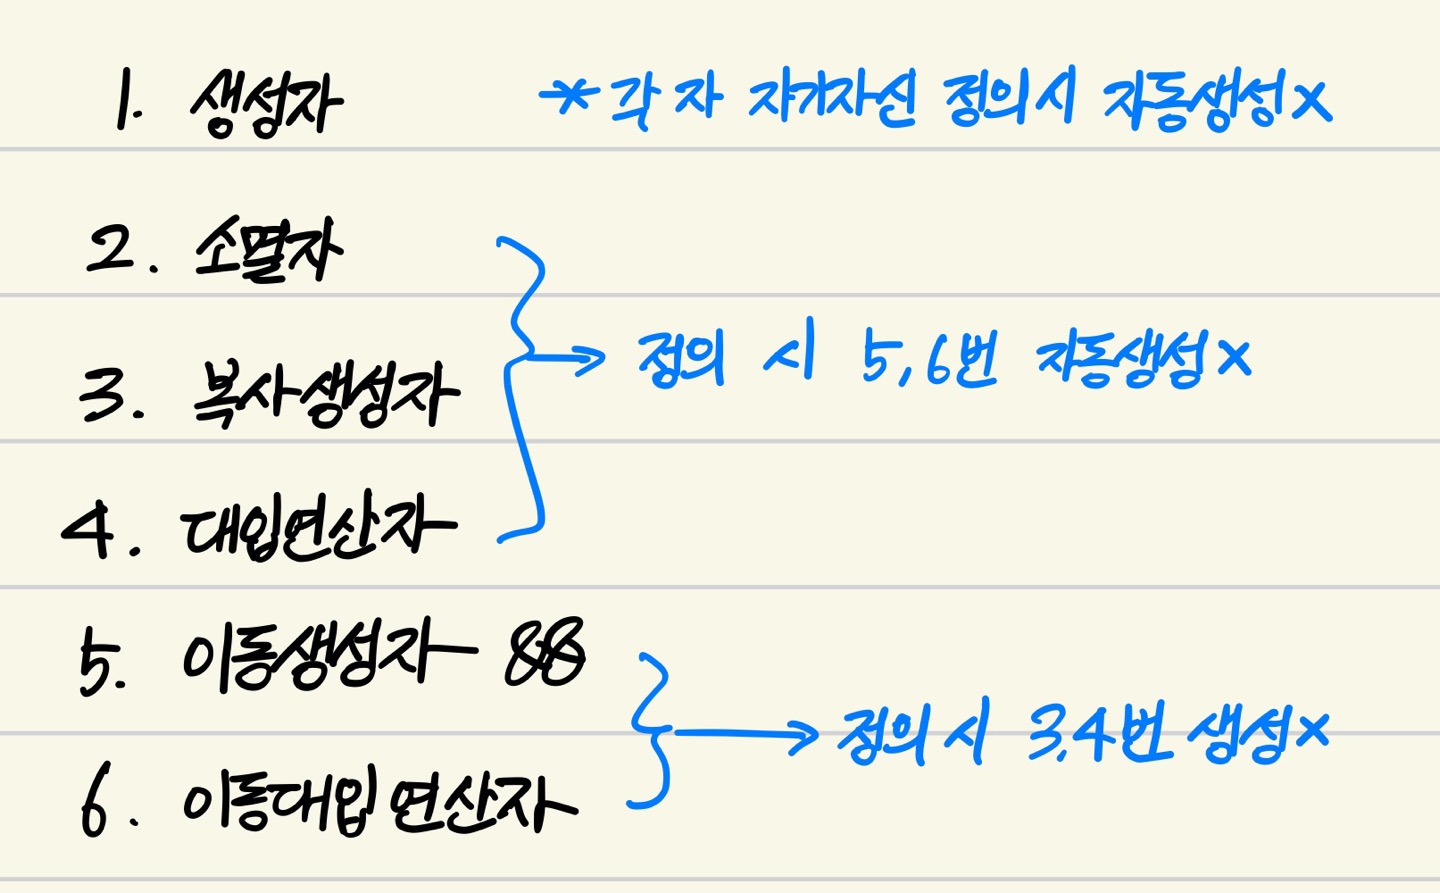 1. 생성자 * 각자 자기자신 정의시 자동생성x
2. 소멸자
3. 복사생성자 → 정의 시 5,6번 자동생성x
4. 대입연산자
5. 이동생성자 - &&
6. 이동대입연산자 → 정의시 3,4번 생성x